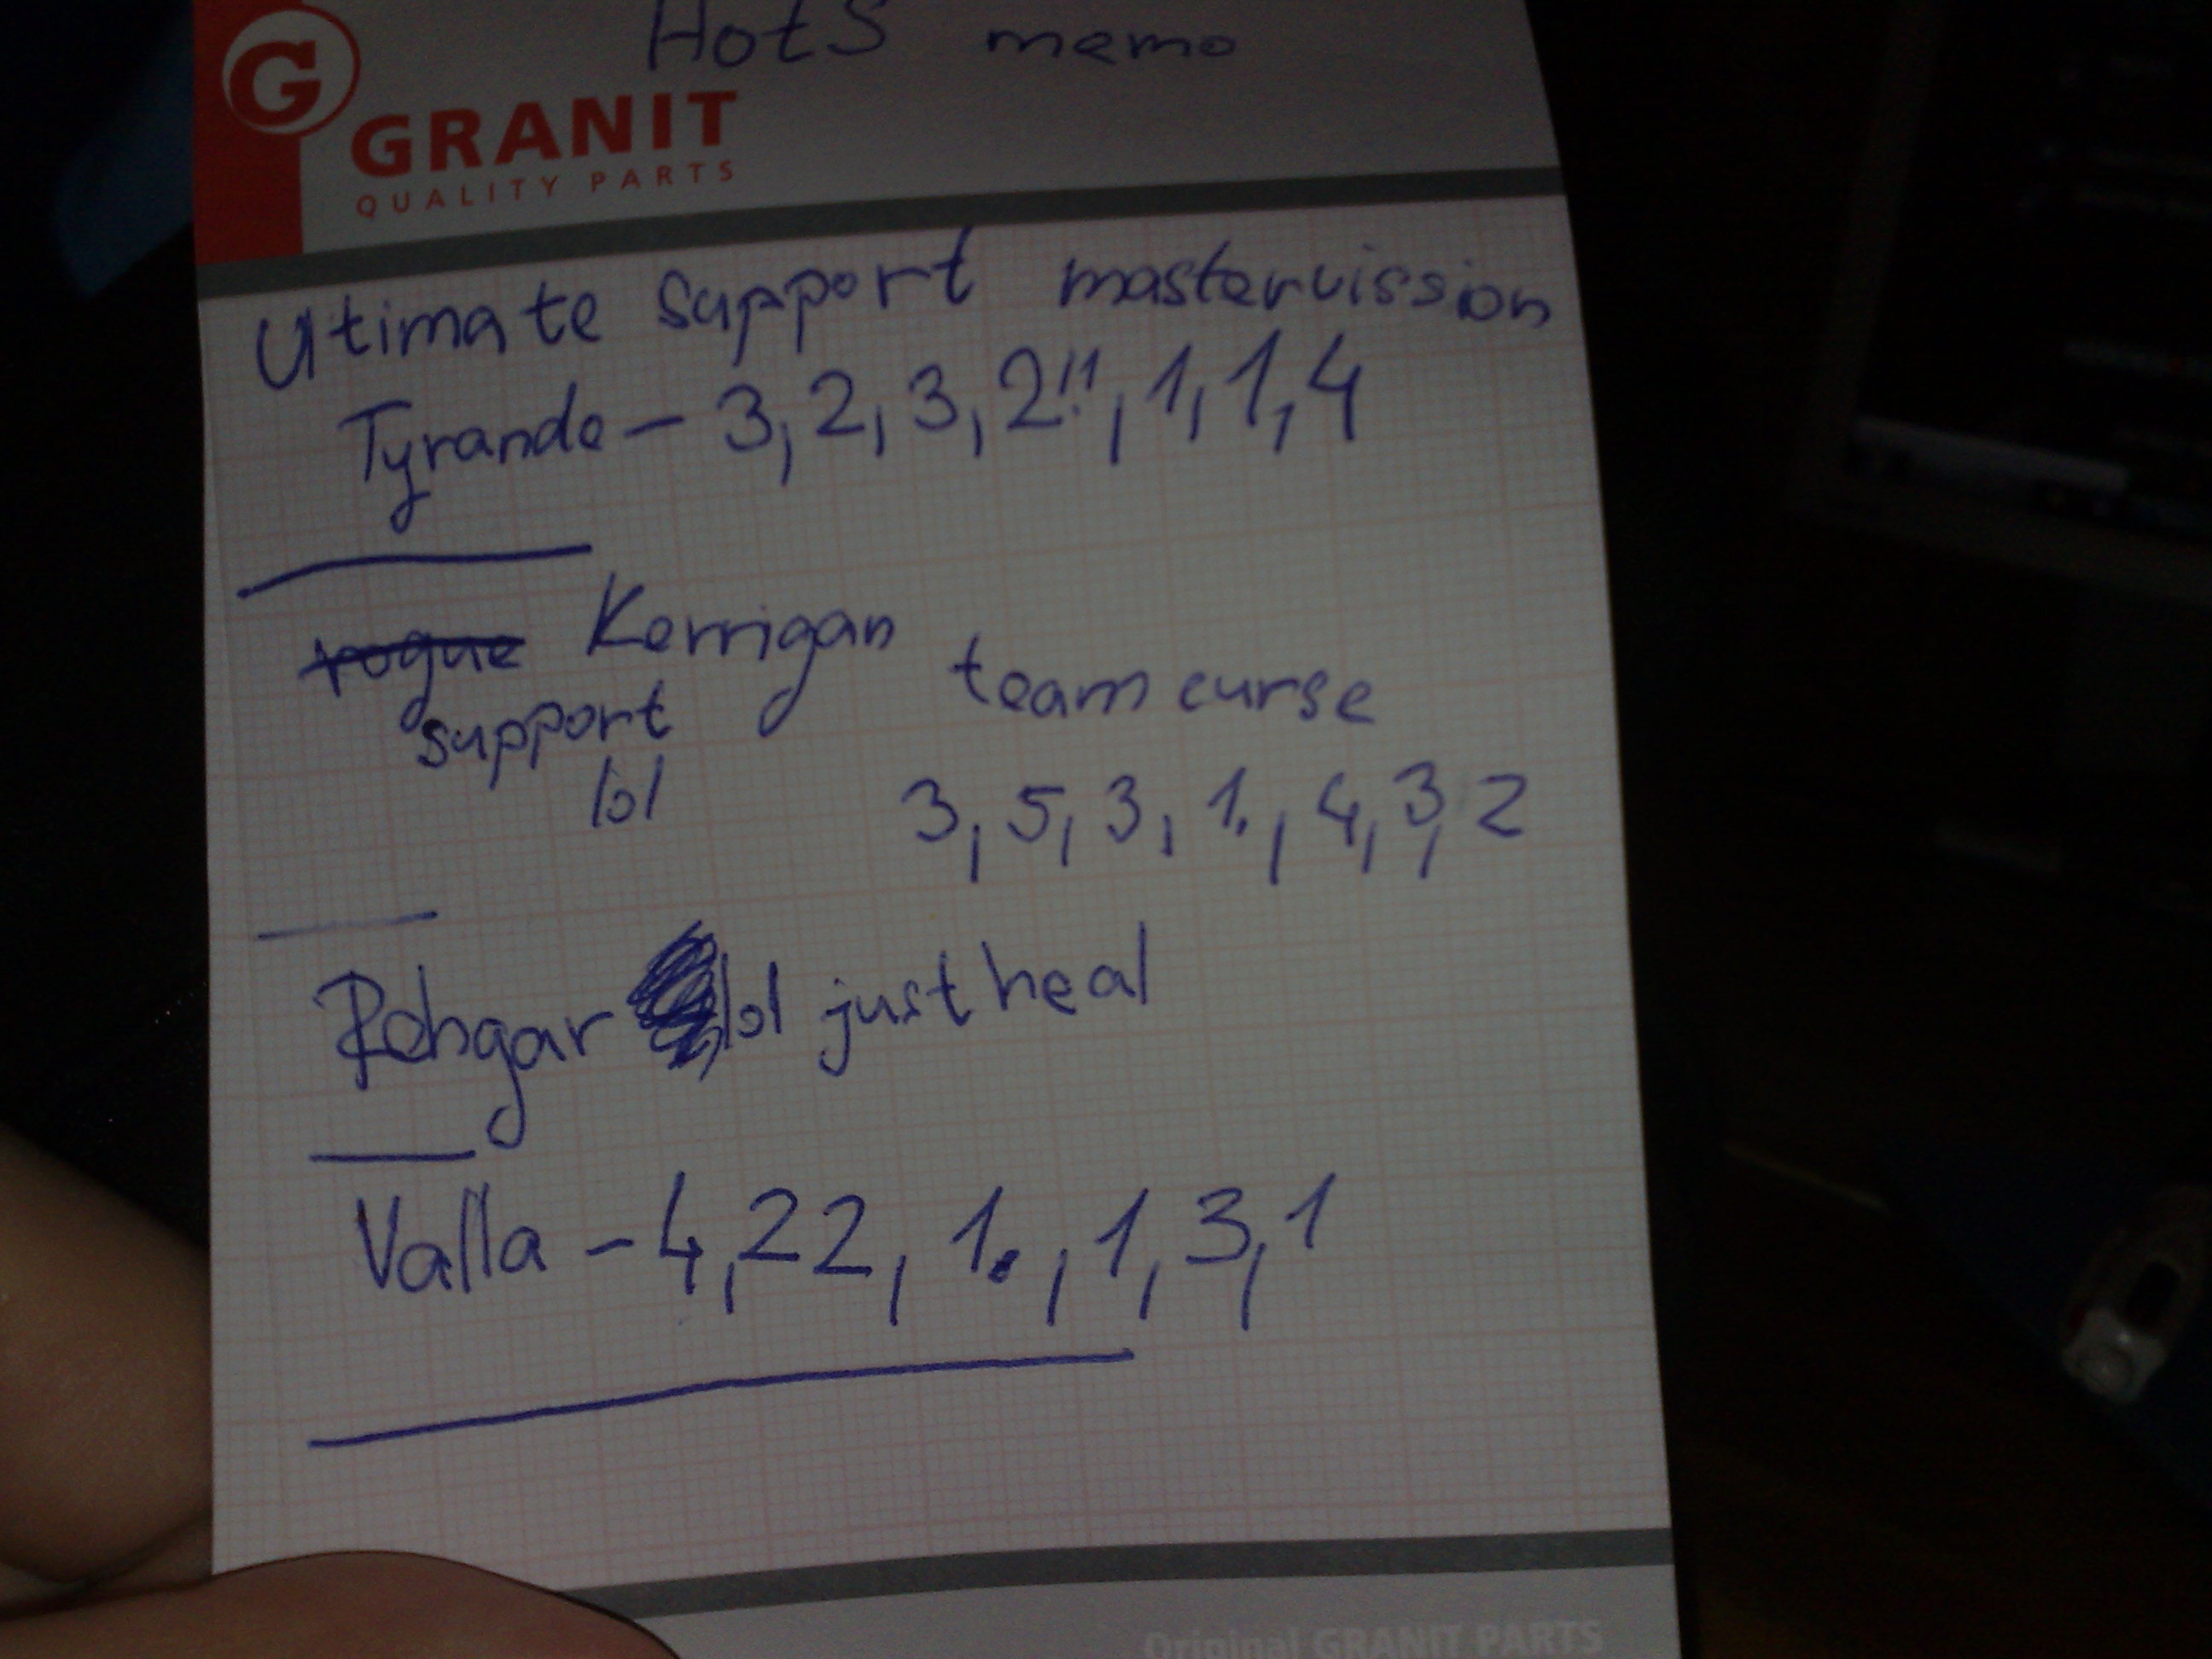 HotS memo
G
GRANIT
QUALITY PARTS
Utimate support mastervission
Tyrande – 3, 2, 3, 2!!, 1, 1, 4
rogue Kerrigan
support
lol
team curse
3, 5, 3, 1., 4, 3, 2
Rehgar lol just heal
Valla – 4, 22, 1., 1, 3, 1
Original GRANIT PARTS